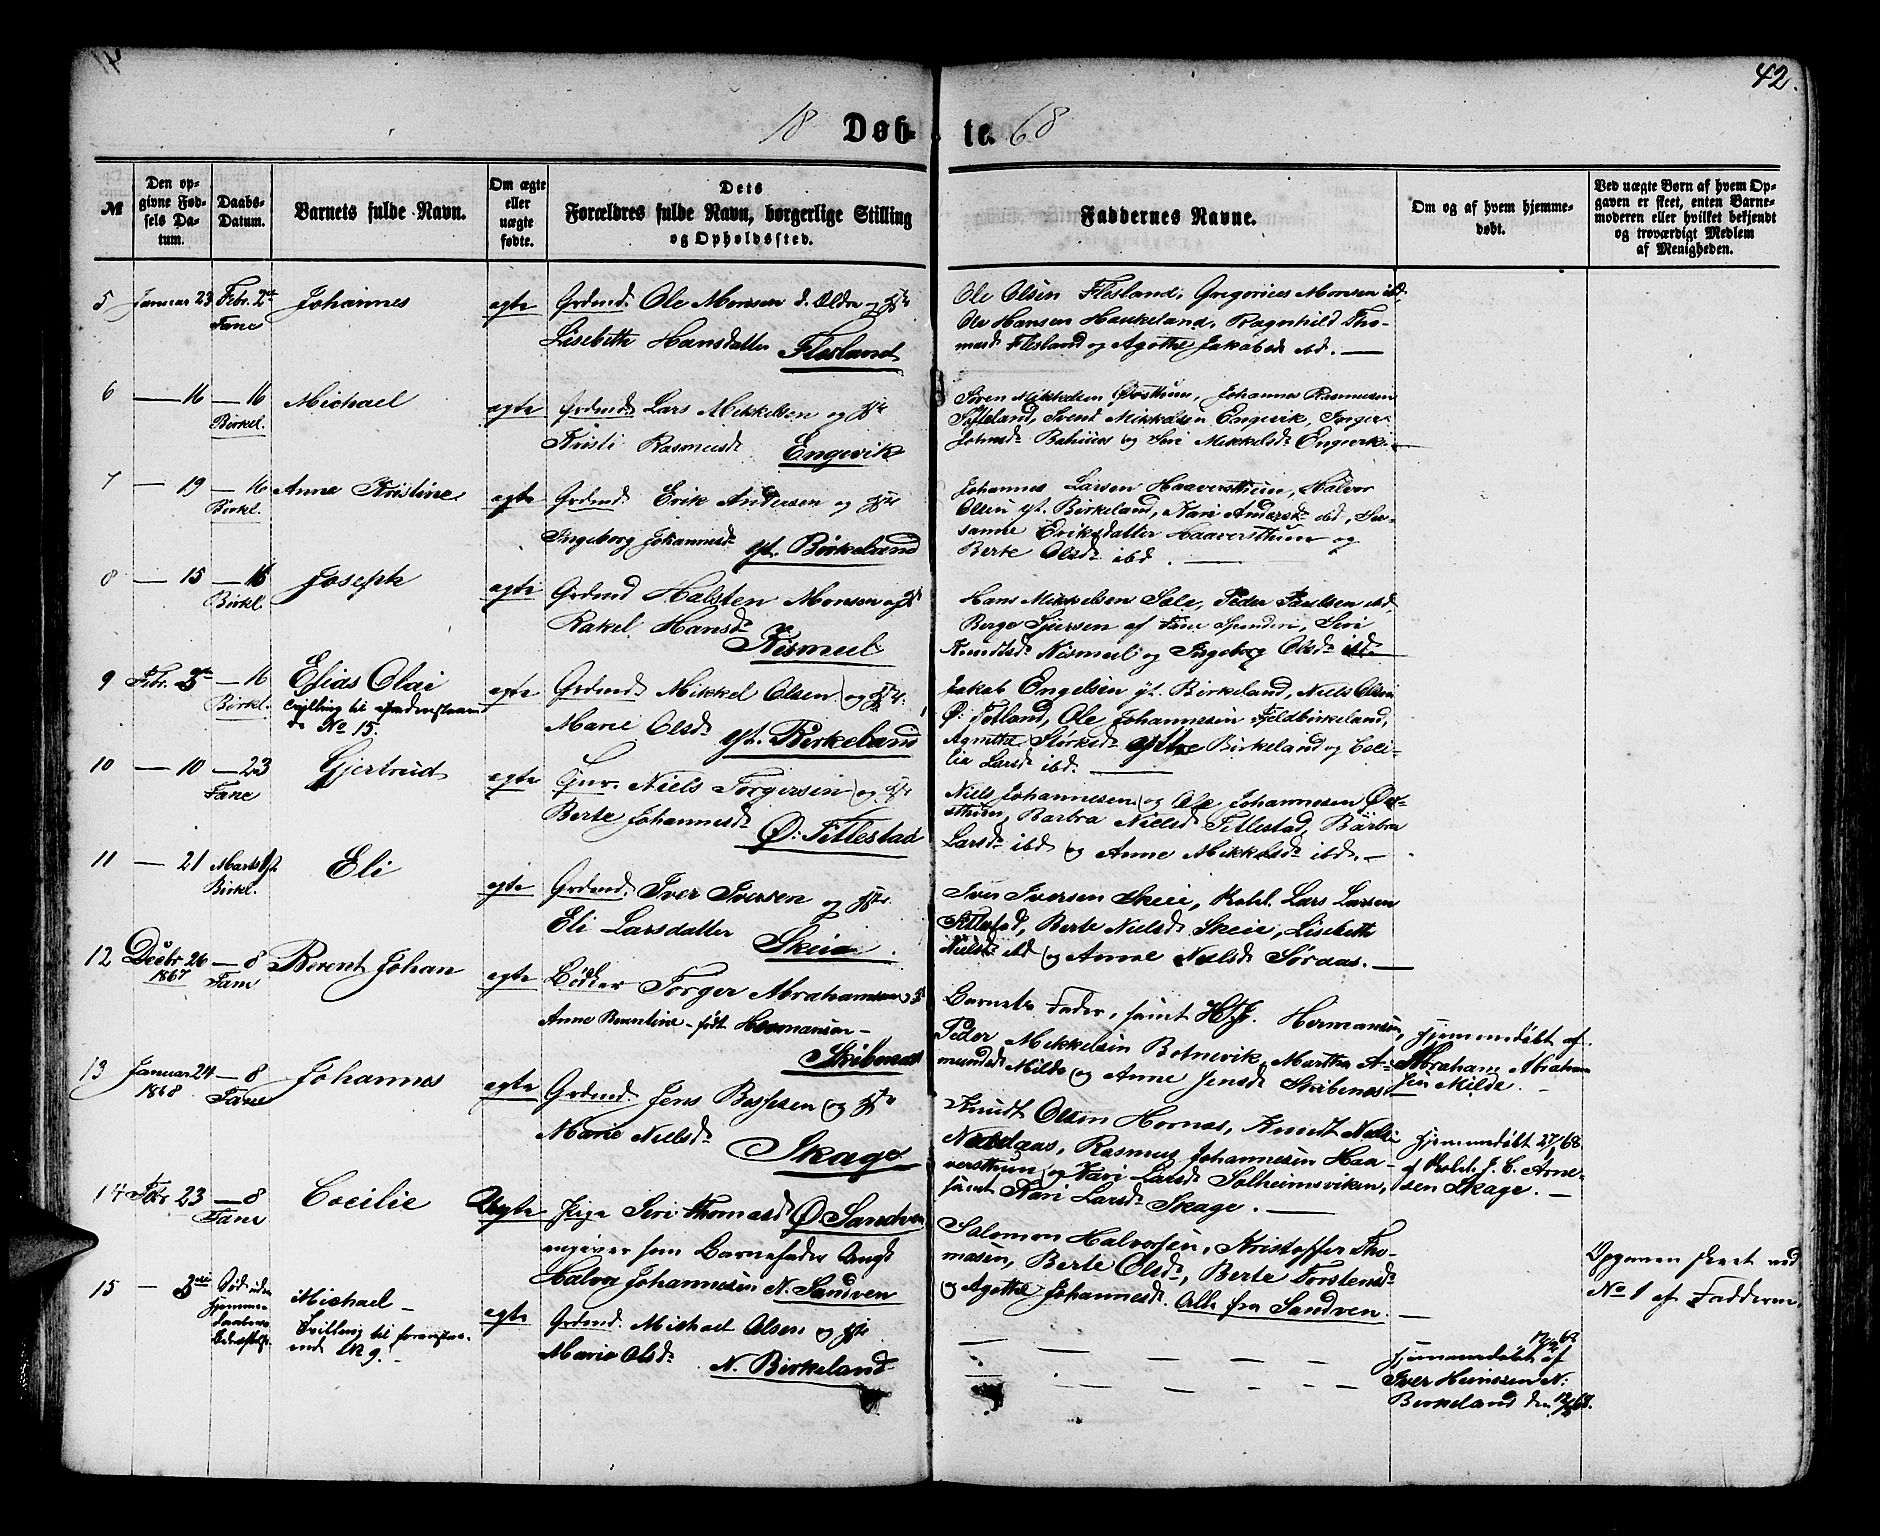 42.
18 Døb- te. 68
№
Den opgivne Fødsels Datum.
Daabs-Datum.
Barnets fulde Navn.
Om ægte eller uægte fødte.
Dets Forældres fulde Navn, borgerlige Stilling og Opholdssted.
Faddernes Navne.
Om og af hvem hjemmedøbt.
Ved uægte Børn af hvem Opgaven er skeet, enten Barnemoderen eller hvilket bekjendt og troværdigt Medlem af Menigheden.
5 Januar 23 Febr. 2den Fane Johannes ægte Grdmd. Ole Monsen d. Ældre og Hstr
Lisebeth Hansdatter Flesland
Ole Olsen Flesland, Gregorius Monsen ibd.
Ole Hansen Haukeland, Ragnhild Tho-
masd. Flesland og Agothe Jakobsd. ibd. —
6 — 16 — 16 Birkel. Michael ægte Grdmd. Lars Mikkelsen og Hstr
Kristi Rasmusd. Engevik
Søren Mikkelsen Øvsthun, Johannes Rasmusen
Titleland, Svend Mikkelsen Engevik, Inger
Johnsd. og Siri Mikkelsd. Engevik. —
7 — 19 — 16 Birkl. Anna Kristine ægte Grdmd. Erik Andersen og Hstr
Ingeborg Johannesd. yt. Birkeland
Johannes Larsen Haaversthun, Halvor
Olsen yt. Birkeland, Kari Andersd. ibd, Su-
sanne Eriksdatter Haaversthun og
Berte Olsd. ibd. —
8 — 15 — 16 Birkl. Joseph ægte Grdmd Halsten Monsen og
Rakel Hansd. Kismul
Hans Mikkelsen Sole, Peder Paulsen ibd,
Berge Sjursen af Fane Siri
Knudtsd. Kismul og Ingeborg Olsd. ibd. —
9 Febr. 3die — 16 Birkl. Elias Olai ægte Grdmd. Mikkel Olsen og Hstr.
Tvilling til
No 15. Marie Olsd. yt. Birkeland
Jakob Engelsen yt. Birkeland, Niels Olsen
Ø: Totland, Ole Johannessen Fjeldbirkeland,
Agnethe Størksd. ytre Birkeland og Ceci-
lia Larsd. ibd. —
10 — 10 — 23 Fane Gjertrud ægte Niels Torgersen og Hstr
Berte Johannesd. Ø: Titlestad
Niels Johannesen og Ole Johannesen Øv-
sthun, Barbra Nielsd. Titlestad, Barbra
Larsd. ibd og Anne Mikkelsd. ibd. —
11 — 21 Marts 1st Birkl. Eli ægte Grdmd. Iver Iversen og Hstr.
Eli Larsdatter Skeie.
Iver Iversen Skeie, Lars Larsen
Titlestad, Berte Nielsd. Skeie, Lisebeth
Nielsd. ibd og Anne Nielsd. Søraas. —
12 Decbr 26 1867 — 8 Fane Berent Johan ægte Bødker Torger Abrahamsen og
Anne Berentine — født Hermansen —
Skibenæs
Barnets Fader, samt H. J. Hermansen,
Peder Mikkelsen Botnevik, Martha A-
mundsd. Milde og Anne Jensd. Skibenæs —
Hjemmedøbt af
Abraham Abraham
sen Milde. —
13 Januar 24 1868 — 8 Fane Johannes ægte Grdmd. Jens Bessesen og Hstr
Marie Nielsd. Skage
Knudt Olsen Hornæs, Knudt Niels
Nordaas, Rasmus Johannesen Haa-
versthun og Kari Larsd. Solheimsviken,
samt Kari Larsd. Skage. —
Hjemmedøbt 27/1 68
af J. C. Arne-
sen Skage. —
14 Febr 23 — 8 Fane Cecilie Uægte Pige Siri Thomasd. Ø Sandven
angiver som Barnefader Ungk
Halvor Johannesen N. Sandven
Salomon Halvorsen, Kristoffer Tho-
masen, Berte Olsd., Berte Torstensd.
og Agothe Johannesd. Alle fra Sandven. —
Opgaven skeet ved
No 1 af Fadderne.
15 — 3die Død uden
Michael —
Tvilling til foranstaa-
ende No 9. — ægte Grdmd. Michael Olsen og Hstr
Marie Olsd. N. Birkeland
Hjemmedøbt af
Iver N:
Birkeland den